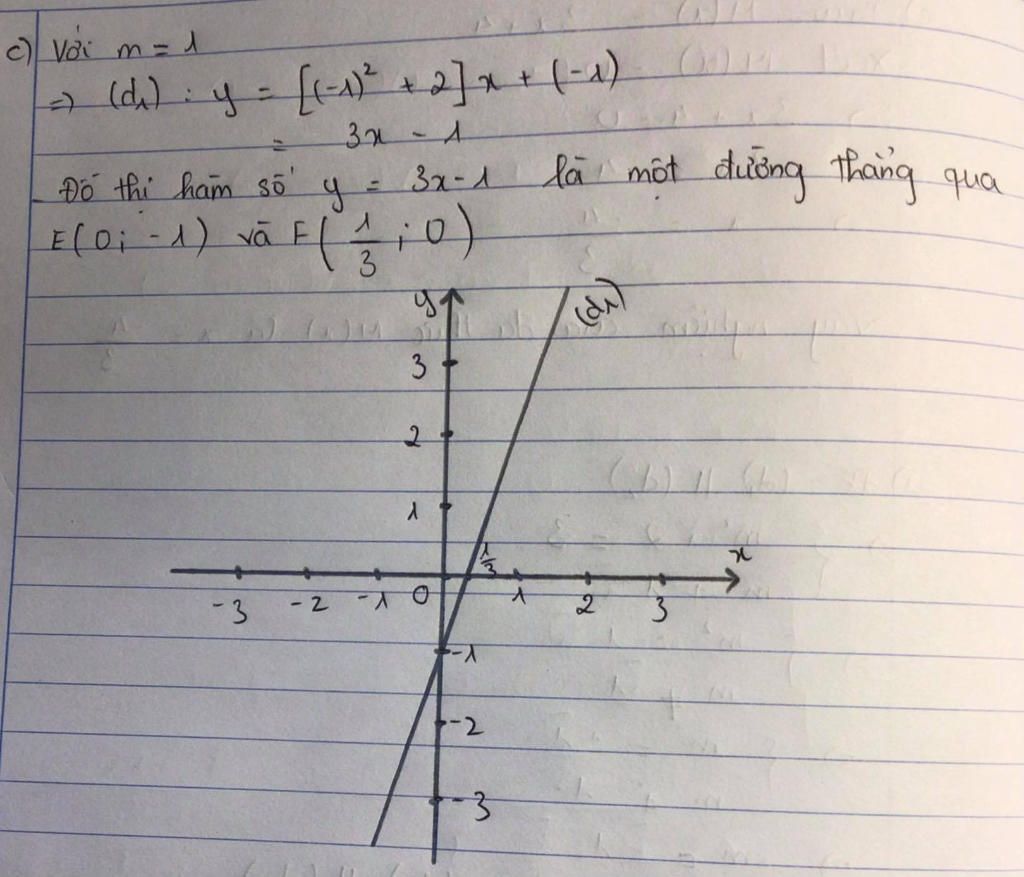 c) Với m = 1
=> (d₁) : y = [(-1)² + 2]x + (-1)
= 3x - 1
- Đồ thị hàm số y = 3x-1 là một đường thẳng qua
E(0; -1) và F(1/3 ; 0)
y
(d₁)
3
2
1
1/3
x
-3 -2 -1 0 1 2 3
-1
-2
-3